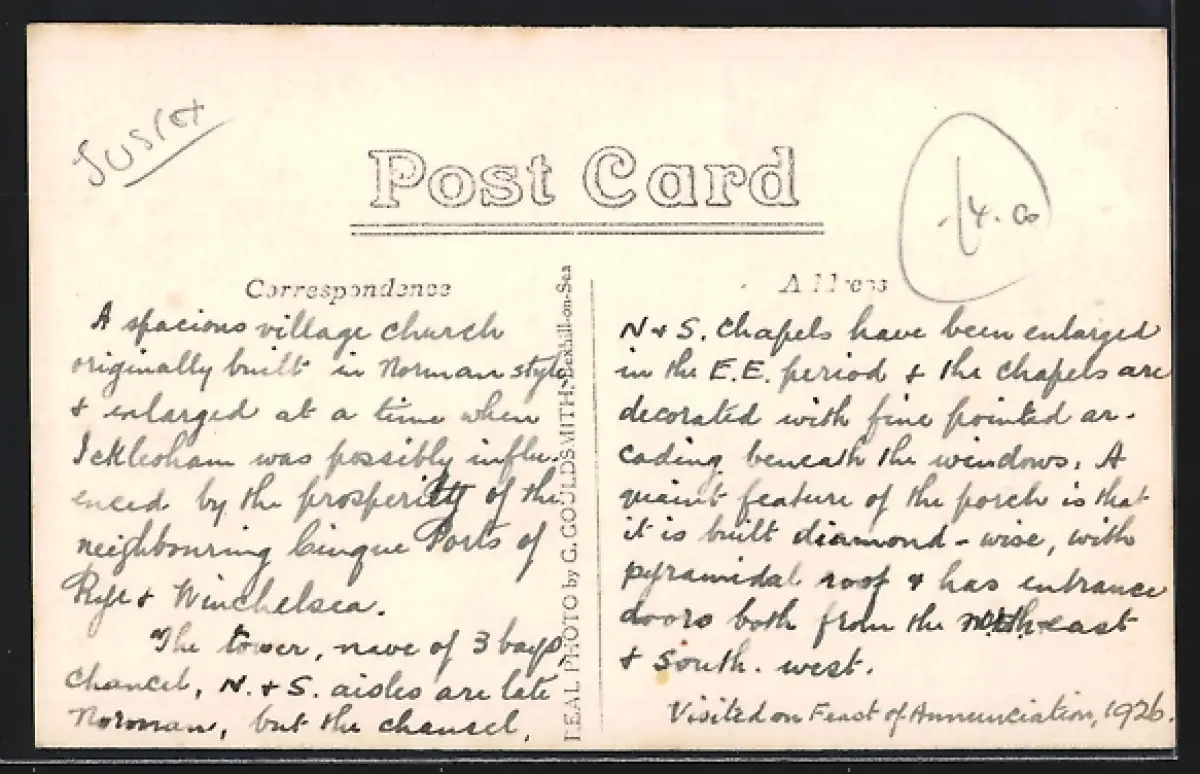 Post Card
Correspondence
A spacious village church
originally built in Norman style
& enlarged at a time when
Ickleoham was possibly influ-
enced by the prosperity of the
neighbouring Cinque Ports of
Rye & Winchelsea.
The tower, nave of 3 bays,
Chancel, N. & S. aisles are late
Norman, but the chancel,
REAL PHOTO by G. GOULDSMITH, Bexhill-on-Sea
Address
N & S. Chapels have been enlarged
in the E.E. period & the chapels are
decorated with fine pointed ar-
cading beneath the windows. A
quaint feature of the porch is that
it is built diamond-wise, with
pyramidal roof & has entrance
doors both from the north-east
& South. west.
Visited on Feast of Annunciation, 1926.